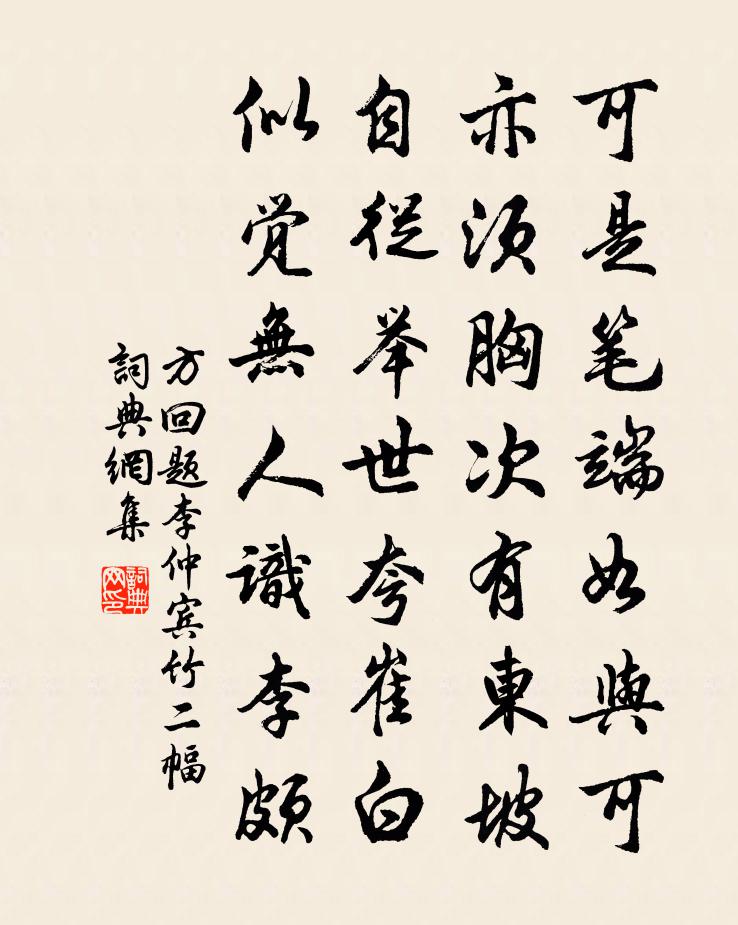 可是笔端如與可
亦須胸次有東坡
自從举世夸崔白
似觉無人識李頗
方回題李仲宾竹二幅
詞典網集
詞典網印